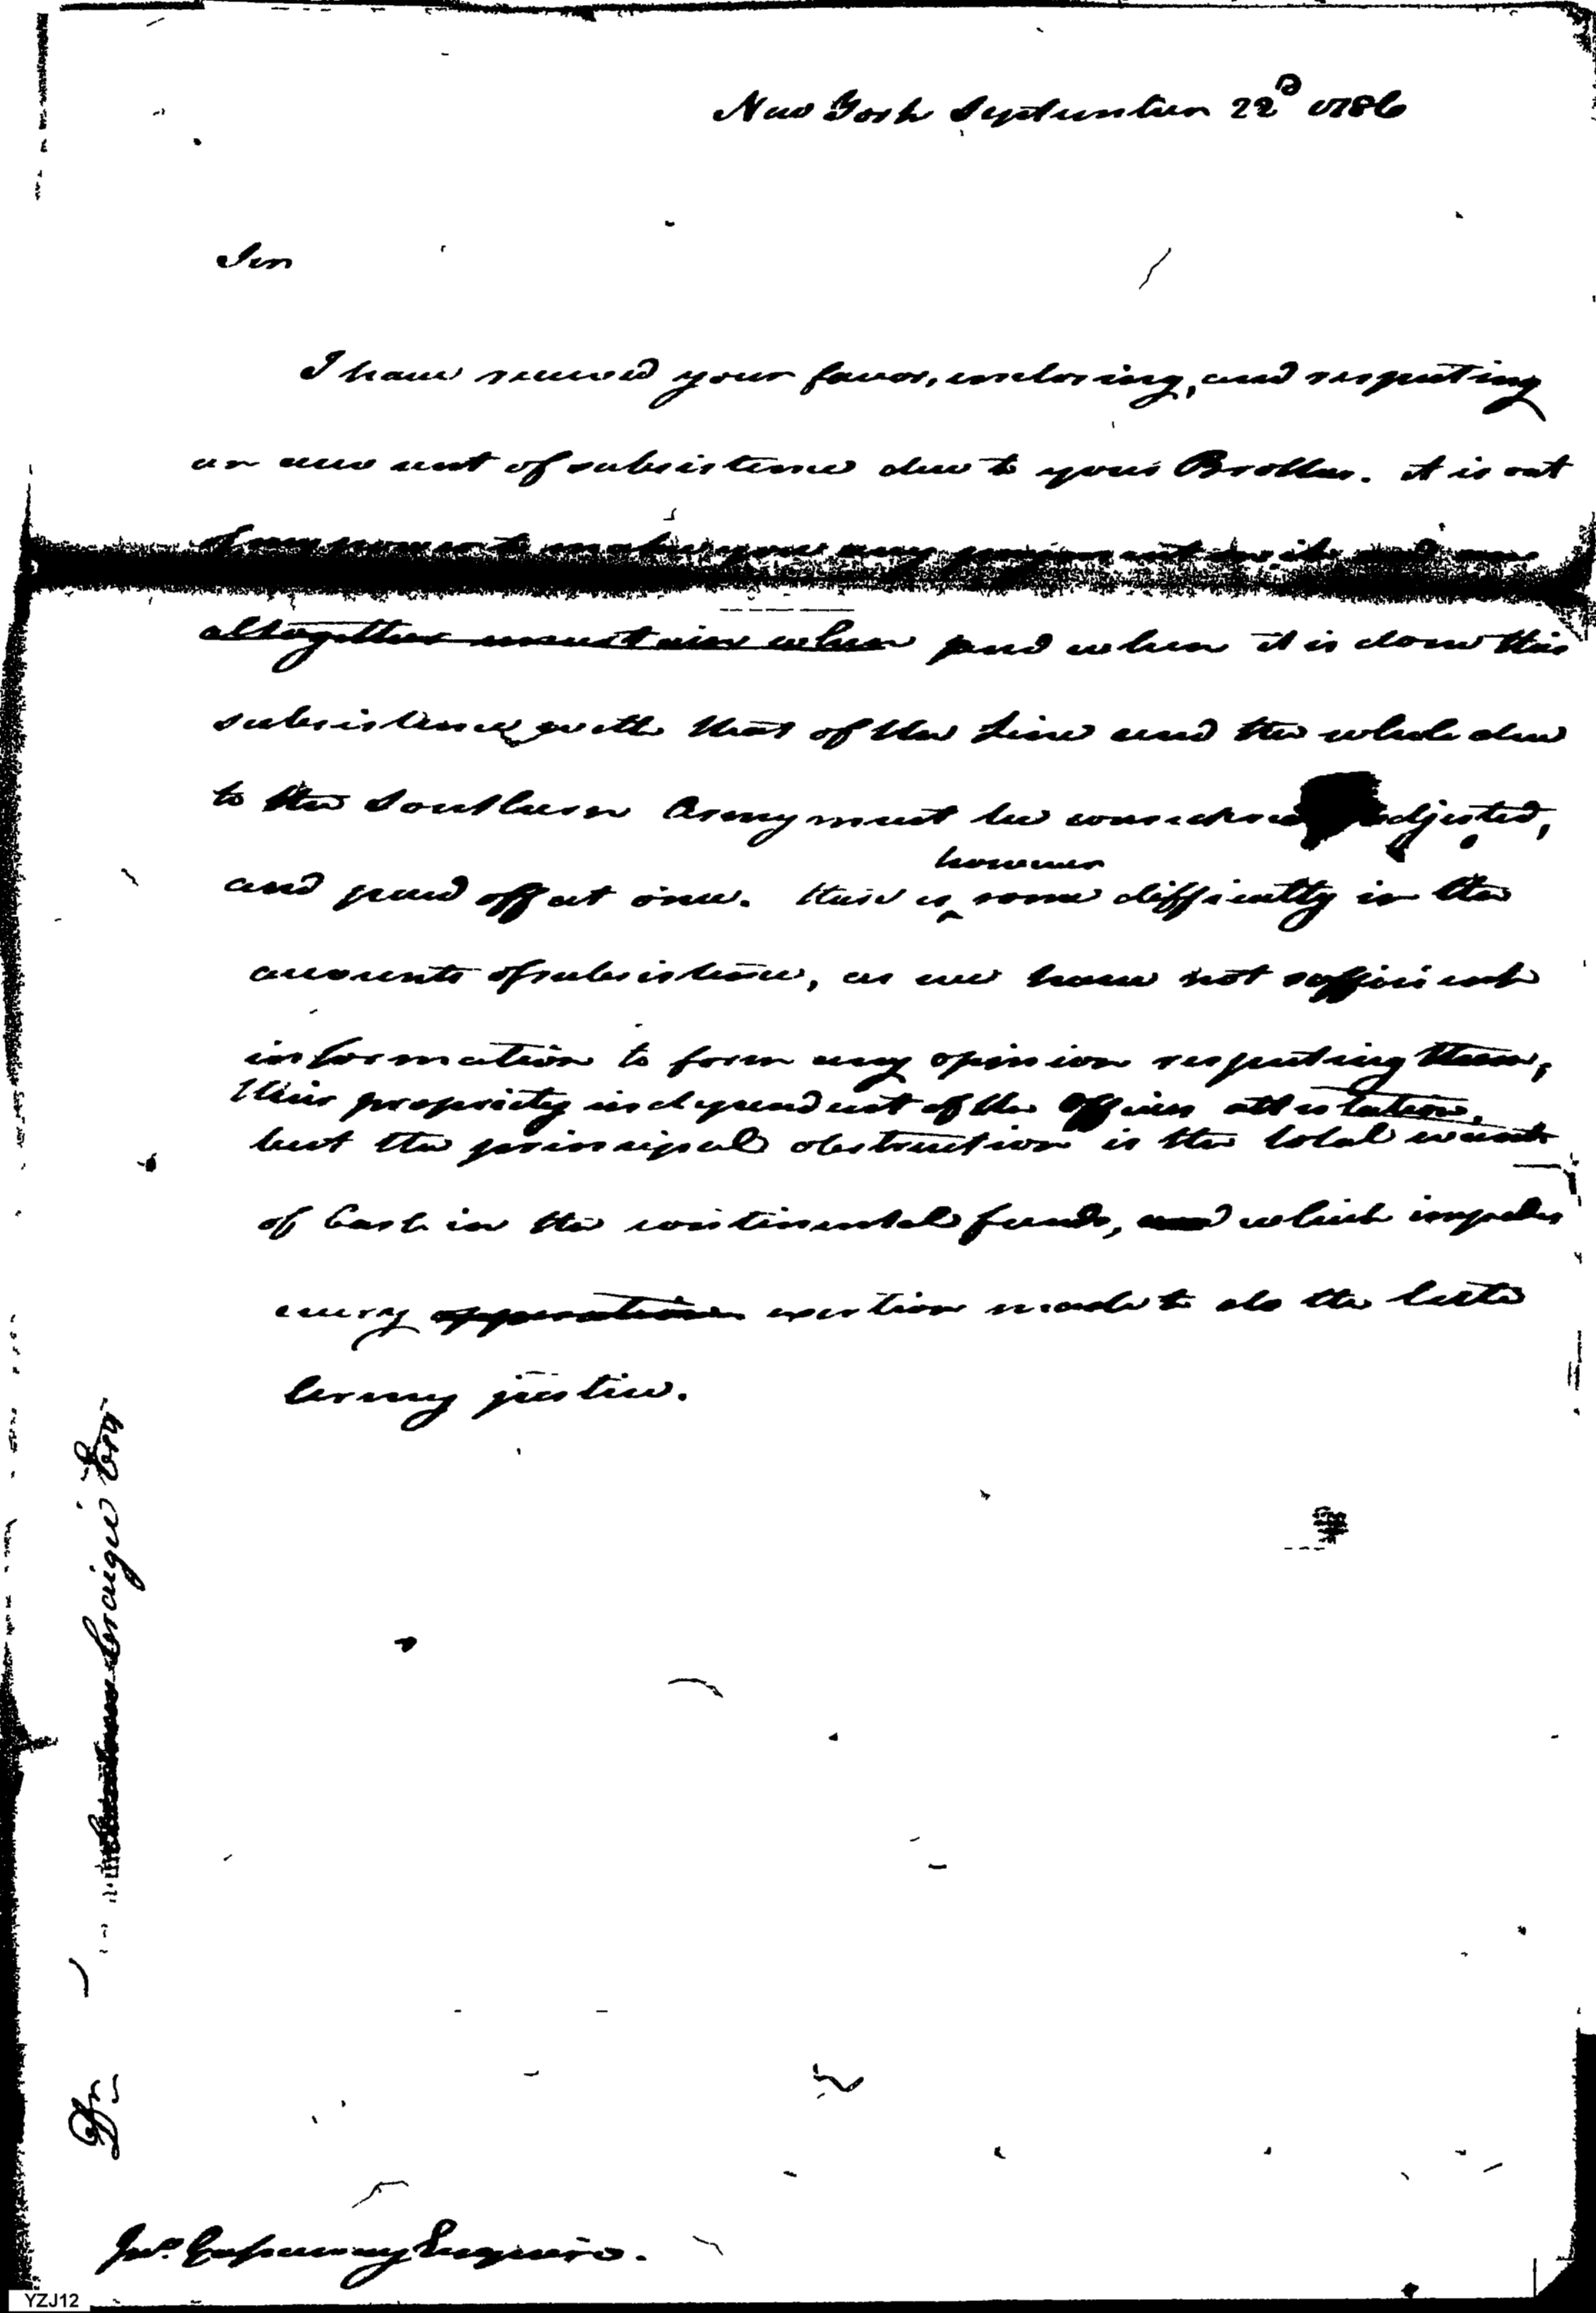 New York September 22d 1786
Sir
I have received your favor, inclosing, and respecting
an account of subsistence due to your Brother. it is out
of my power to make you any payment on it
altogether uncertain when and when it is done this
subsistence with that of the Line and the whole due
to the Southern Army must be considered adjusted,
however
and paid off at once. there is some difficulty in the
accounts of subsistence, as we have not sufficient
information to form any opinion respecting them,
their propriety independent of the officers attestation.
but the principal obstruction is the total want
of Cash in the continental funds, and which impedes
every opperation exertion made to do the late
Army justice.
Craigie Esqr
Dr
Jno. Esquire.
YZJ12